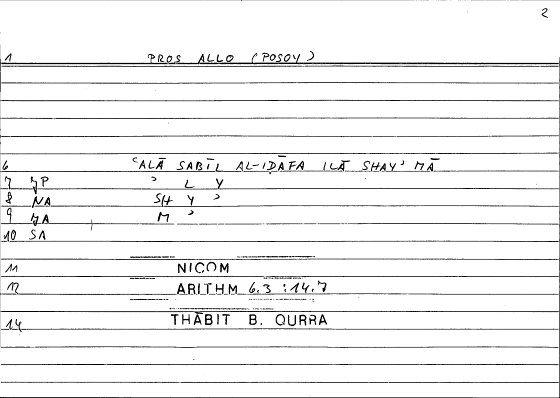 2
1 PROS ALLO (POSOY)
6 ʿALĀ SABĪL AL-IḌĀFA ILĀ SHAYʾ MĀ
7 JP ʾ L Y
8 NA SH Y ʾ
9 JA M ʾ
10 SA
11 NICOM
12 ARITHM 6.3 :14.7
14 THĀBIT B. QURRA